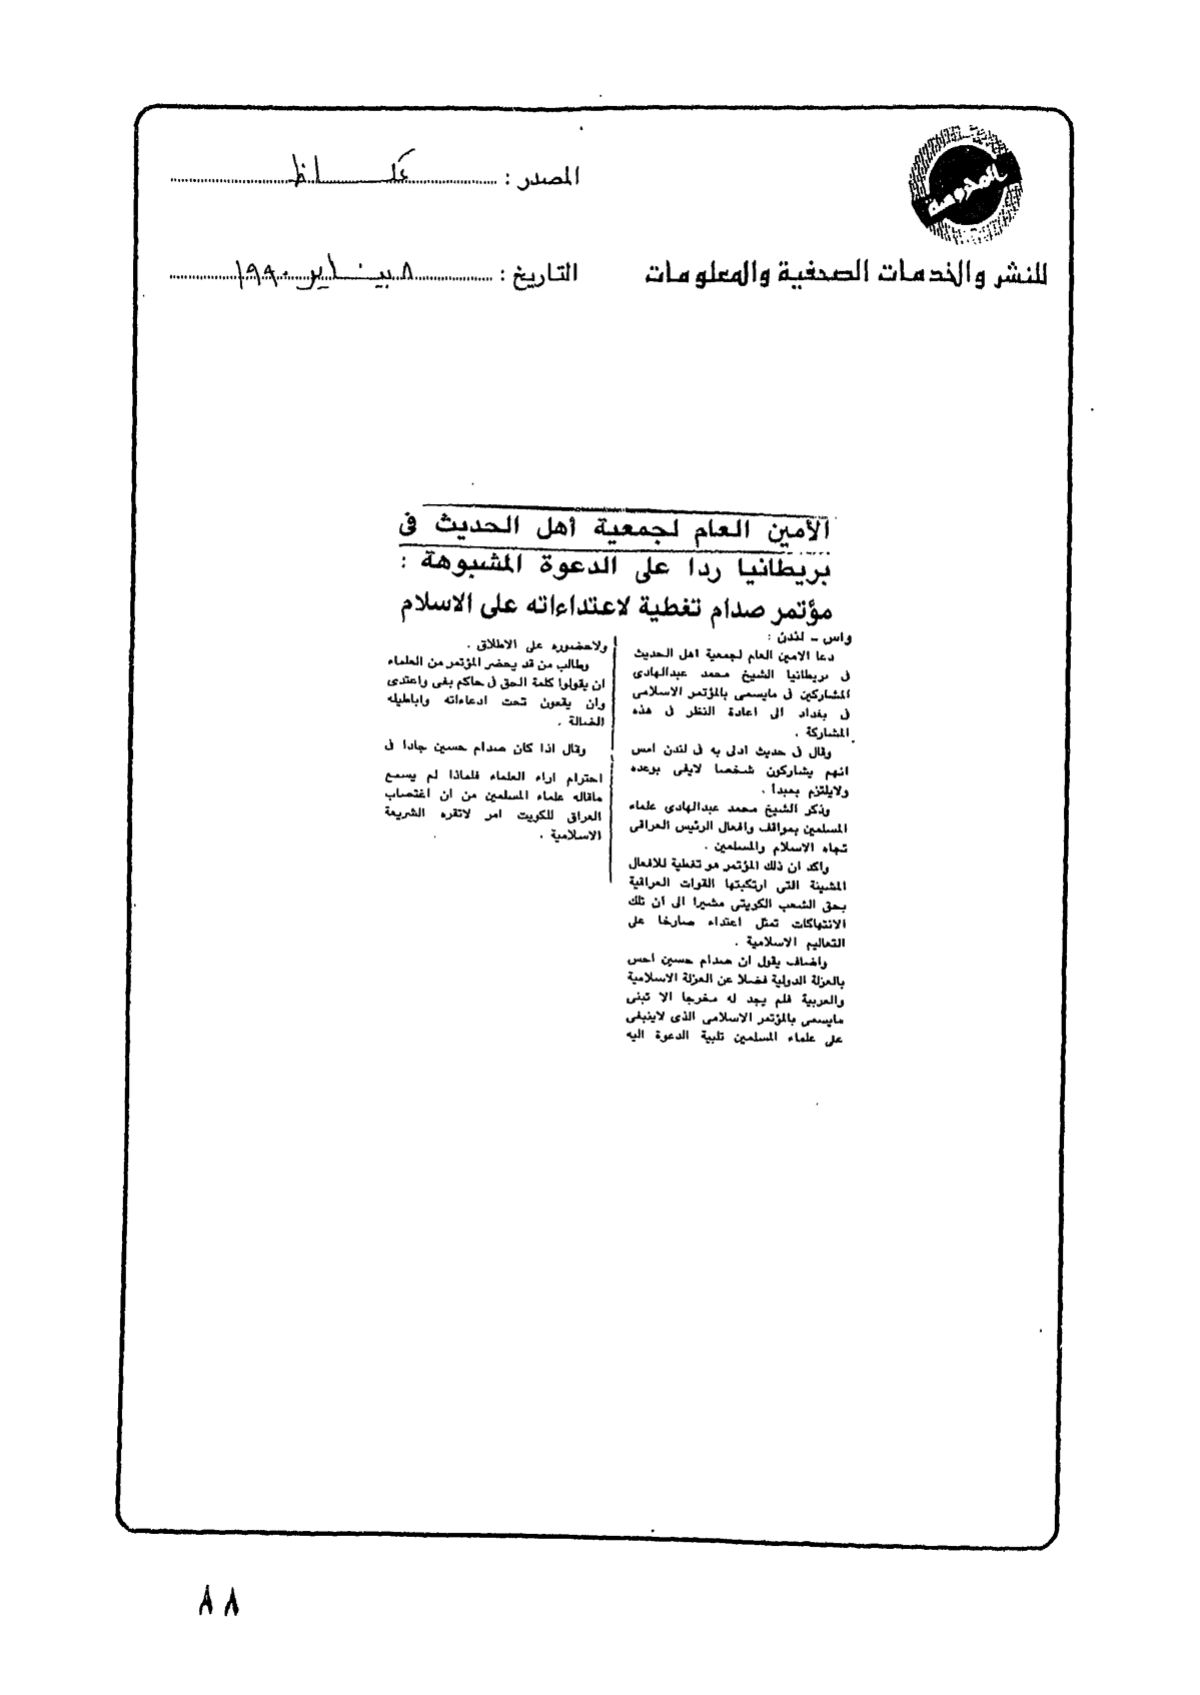 المحروسة
للنشر والخدمات الصحفية والمعلومات
المصدر : عكاظ
التاريخ : ٨ يناير ١٩٩٠
الأمين العام لجمعية أهل الحديث فى
بريطانيا ردا على الدعوة المشبوهة :
مؤتمر صدام تغطية لاعتداءاته على الاسلام
واس - لندن :
دعا الامين العام لجمعية اهل الحديث
فى بريطانيا الشيخ محمد عبدالهادى
المشاركين فى مايسمى بالمؤتمر الاسلامى
فى بغداد الى اعادة النظر فى هذه
المشاركة .
وقال فى حديث ادلى به فى لندن امس
انهم يشاركون شخصا لايفى بوعده
ولايلتزم بمبدا .
وذكر الشيخ محمد عبدالهادى علماء
المسلمين بمواقف وافعال الرئيس العراقى
تجاه الاسلام والمسلمين .
واكد ان ذلك المؤتمر هو تغطية للافعال
المشينة التى ارتكبتها القوات العراقية
بحق الشعب الكويتى مشيرا الى ان تلك
الانتهاكات تمثل اعتداء صارخا على
التعاليم الاسلامية .
واضاف يقول ان صدام حسين احس
بالعزلة الدولية فضلا عن العزلة الاسلامية
والعربية فلم يجد له مخرجا الا تبنى
مايسمى بالمؤتمر الاسلامى الذى لاينبغى
على علماء المسلمين تلبية الدعوة اليه
ولاحضوره على الاطلاق .
وطالب من قد يحضر المؤتمر من العلماء
ان يقولوا كلمة الحق فى حاكم بغى واعتدى
وان يقعون تحت ادعاءاته واباطيله
الضالة .
وقال اذا كان صدام حسين جادا فى
احترام اراء العلماء فلماذا لم يسمع
ماقاله علماء المسلمين من ان اغتصاب
العراق للكويت امر لاتقره الشريعة
الاسلامية .
٨٨